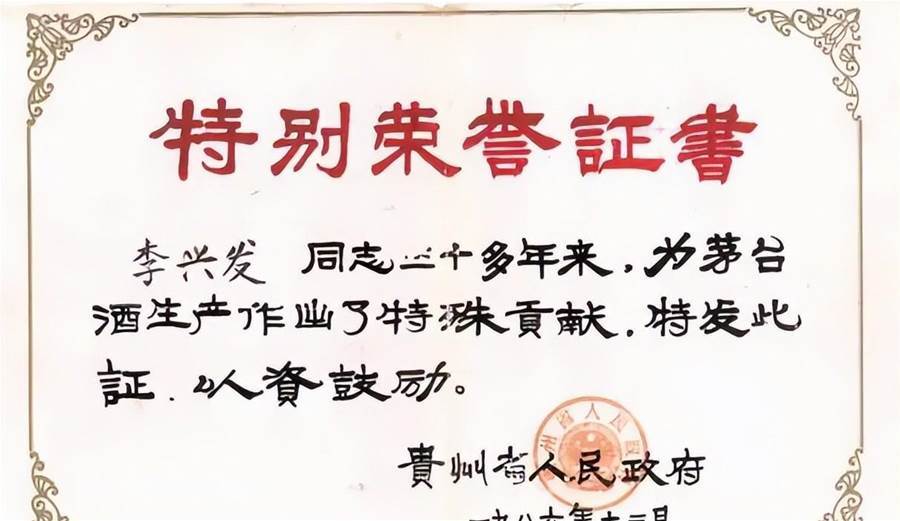 特别荣誉証書
李兴发 同志三十多年来，为茅台
酒生产作出了特殊貢献，特发此
証，以资鼓励。
貴州省人民政府